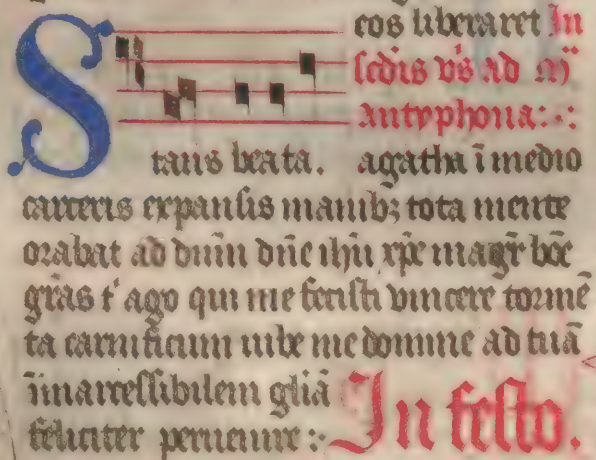 eos liberaret In
secu͂dis vs̄ ad m̄
antyphona:·:
Stans beata. agatha ī medio
carceris expansis manibꝫ tota mente
orabat ad dn̄m dn̄e ih̄u xp̄e magr̄ boē
grās t' ago qui me fecisti vincere tormē
ta carnificum iube me domine ad tuā
īmarcessibilem gliā
feliciter peruenire:· In festo.